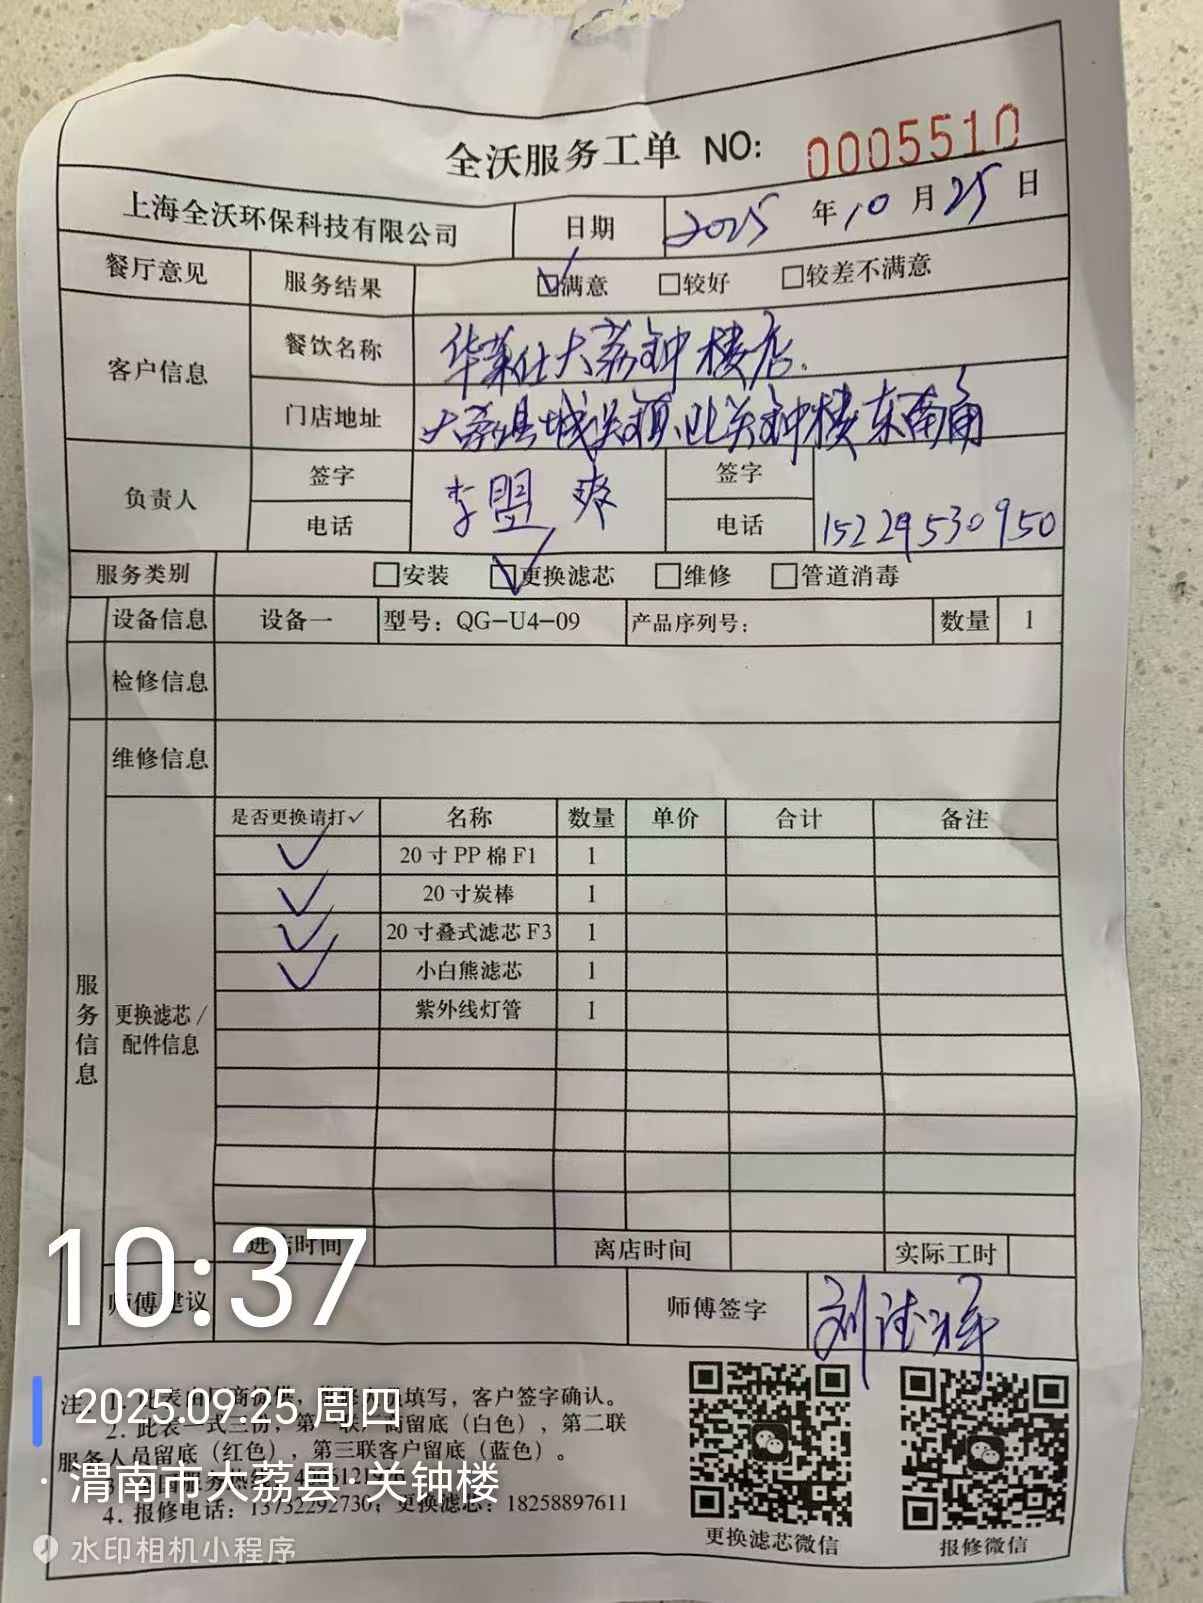 全沃服务工单 NO: 0005510
上海全沃环保科技有限公司 日期 2025 年 10 月 25 日
餐厅意见 服务结果 ☑满意 □较好 □较差不满意
客户信息 餐饮名称 华莱仕大荔钟楼店.
门店地址 大荔县城关镇.北关钟楼东南角
负责人 签字 李盟爽 签字
电话 电话 15229530950
服务类别 □安装 ☑更换滤芯 □维修 □管道消毒
设备信息 设备一 型号: QG-U4-09 产品序列号: 数量 1
检修信息
维修信息
服务信息
更换滤芯/
配件信息
是否更换请打✓ 名称 数量 单价 合计 备注
✓ 20寸PP棉F1 1
✓ 20寸炭棒 1
✓ 20寸叠式滤芯F3 1
✓ 小白熊滤芯 1
紫外线灯管 1
进店时间 离店时间 实际工时
师傅建议 师傅签字
10:37
2025.09.25 周四
渭南市大荔县·关钟楼
水印相机小程序
注 填写，客户签字确认。
2. 此表一式三份，第一联厂商留底（白色），第二联
服务人员留底（红色），第三联客户留底（蓝色）。
4. 报修电话: 13732292730; 更换滤芯: 18258897611
更换滤芯微信 报修微信